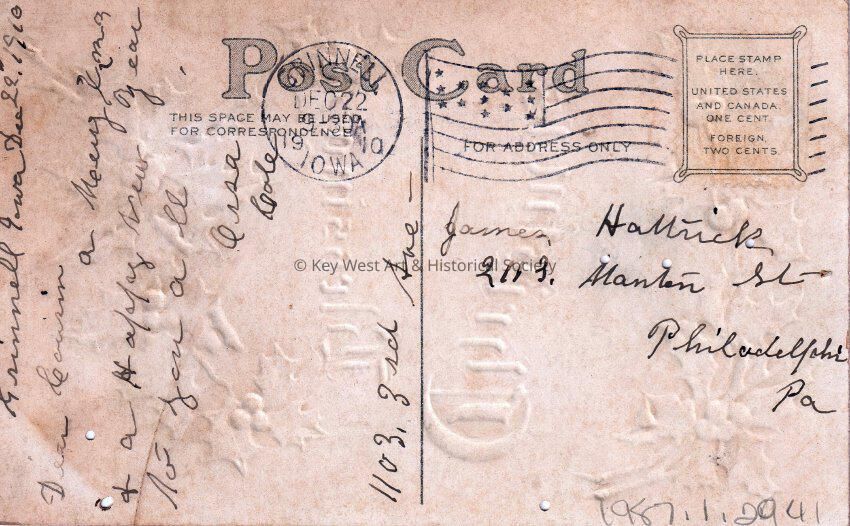 Post Card
THIS SPACE MAY BE USED
FOR CORRESPONDENCE
FOR ADDRESS ONLY
PLACE STAMP
HERE.
UNITED STATES
AND CANADA,
ONE CENT.
FOREIGN,
TWO CENTS.
GRINNELL
DEC 22
1910
IOWA
Grinnell Iowa Dec 22, 1910
Dear Cousin
a Merry Xmas
& a Happy New Year
to you all
Cole
1103, 3rd Ave
James Hattrick
2113. Manton St
Philadelphia
Pa
© Key West Art & Historical Society
1987.1.2941